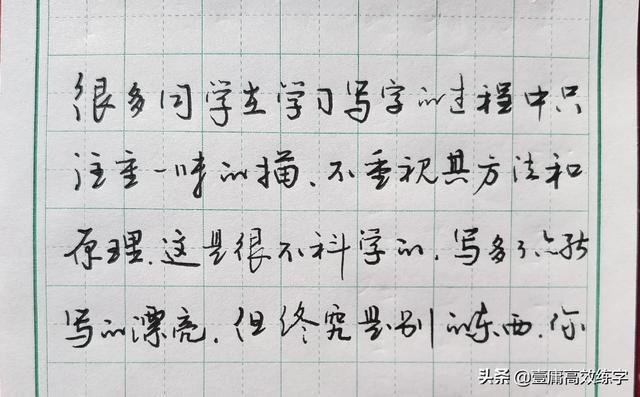 很多同学在学习写字的过程中只
注重一味的描、不重视其方法和
原理.这是很不科学的.写多了亦能
写的漂亮.但终究是别的东西.你
头条@壹庸高效练字